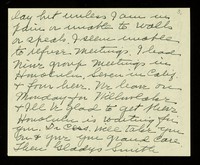 day but unless I am in
pain or unable to walk
or speak, I seem unable
to refuse meetings. I lead
nine group meetings in
Honolulu, seven in Calif.
& four here. We leave on
Monday for
& I'll be glad to get there
Honolulu is waiting for
you. Dr Cass will take you
in & give you grand care
Then Gladys Smith